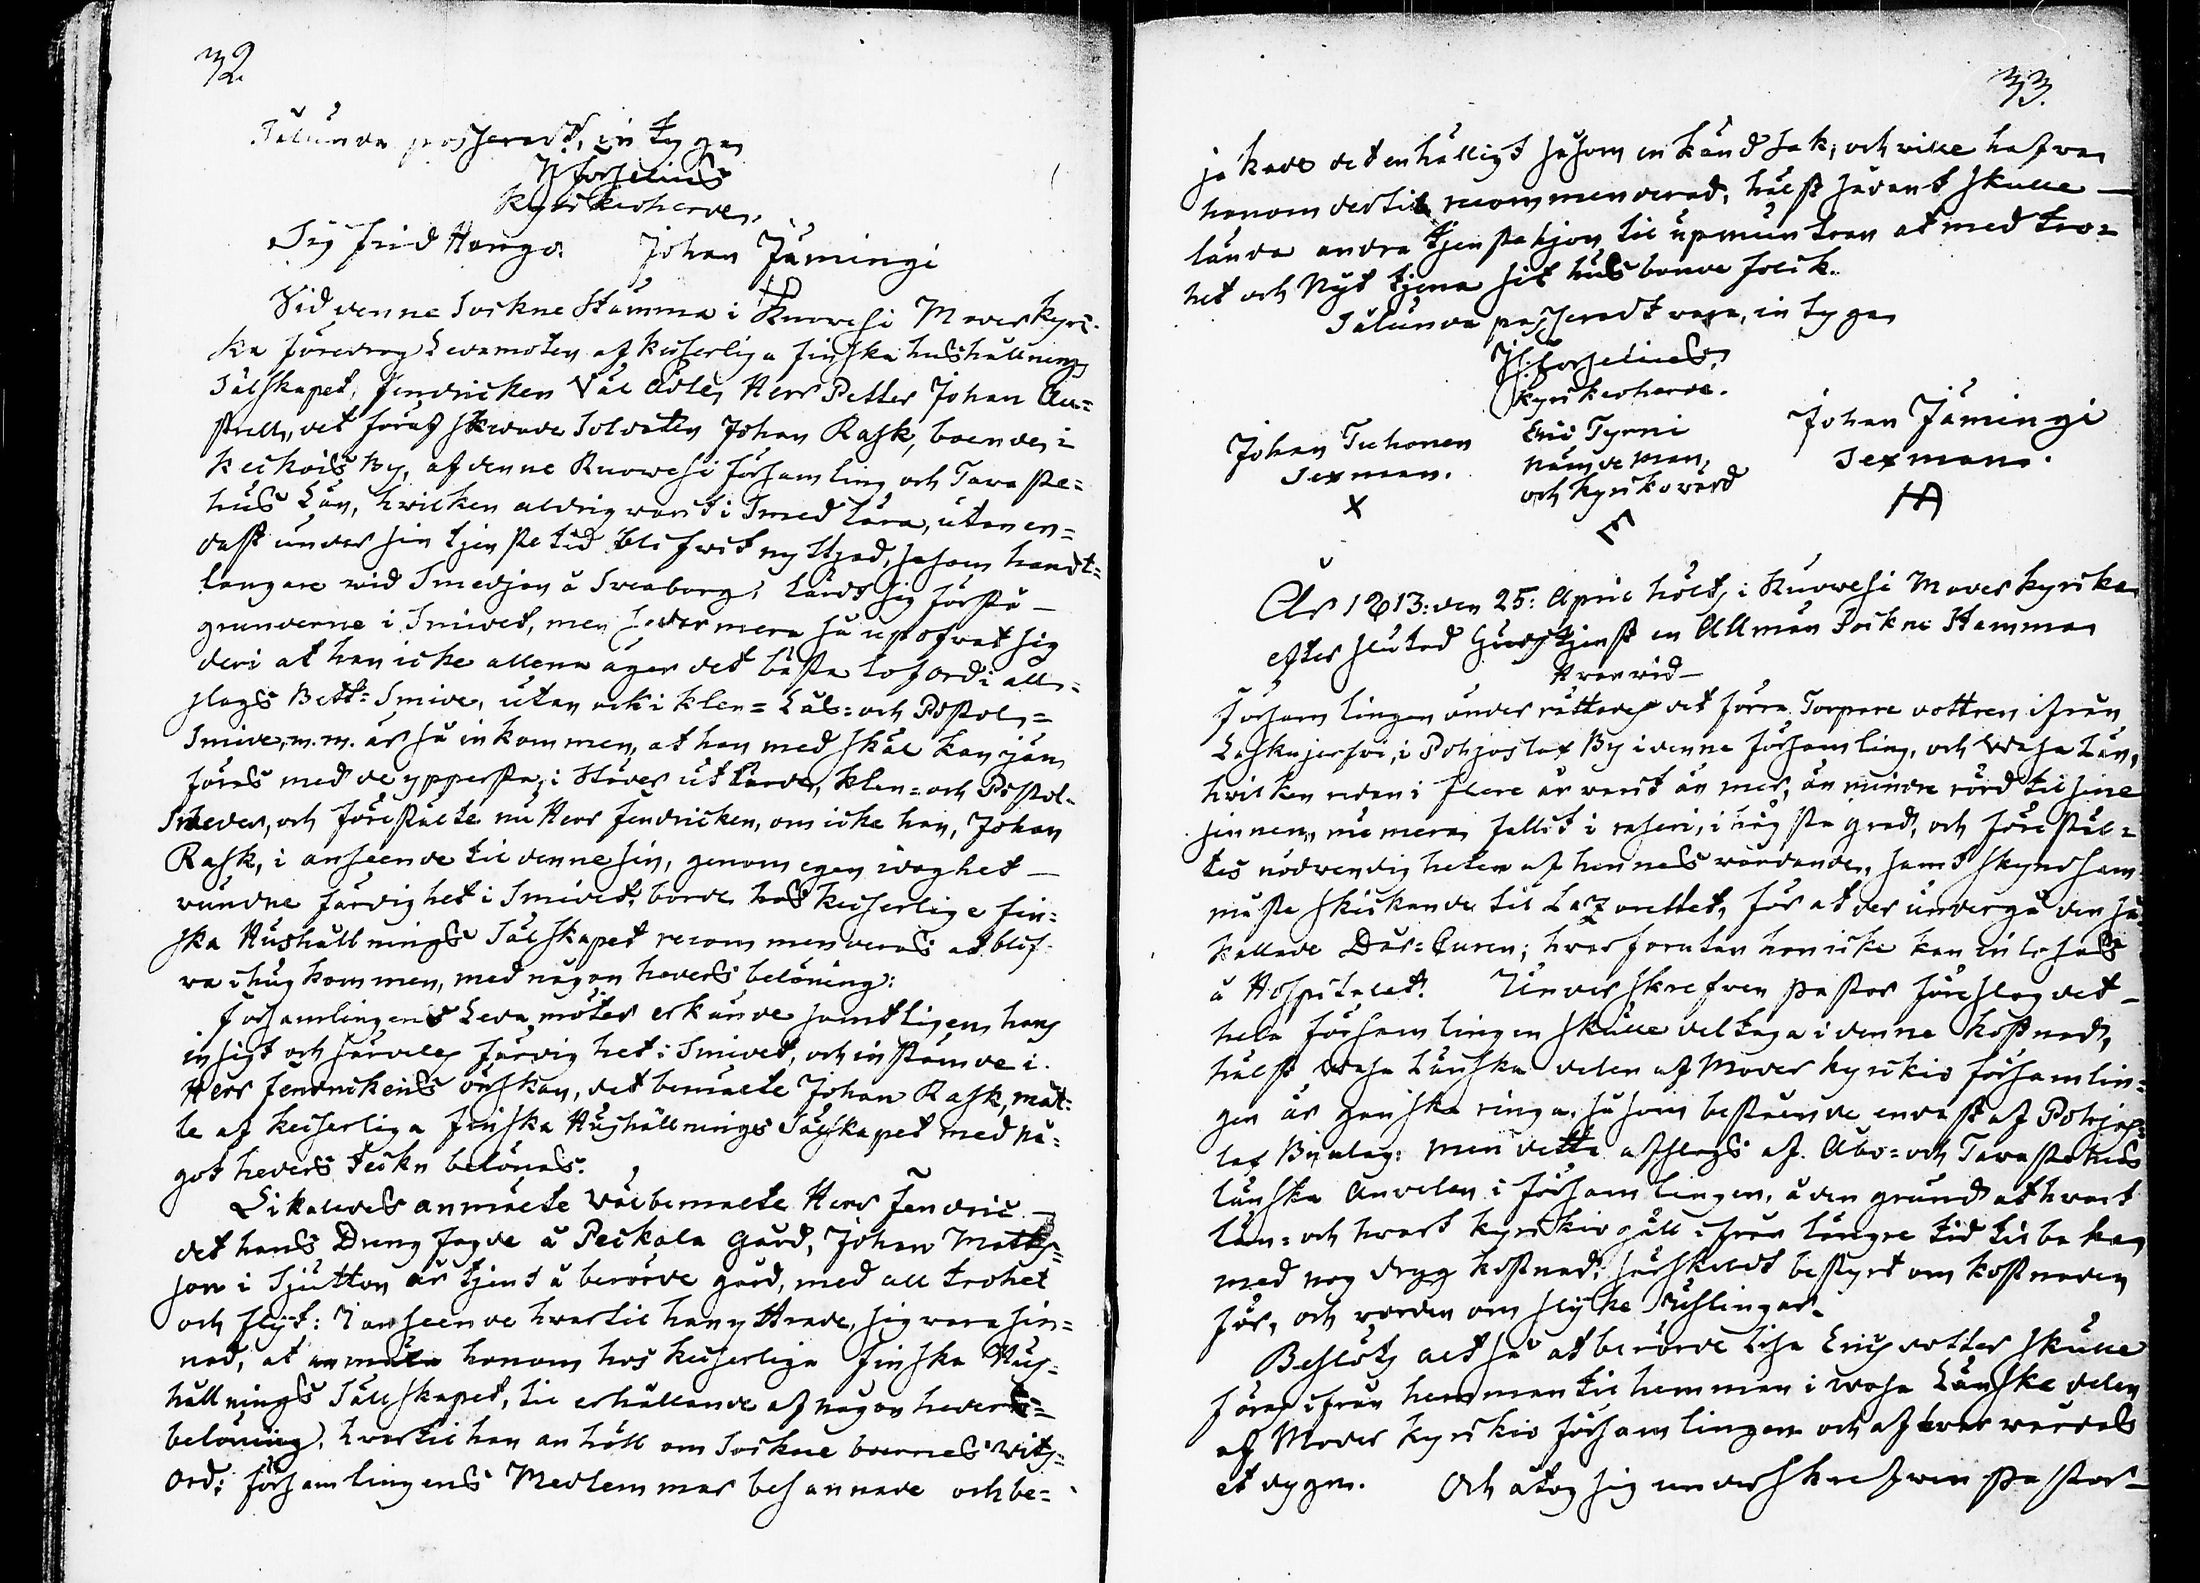 32
Sålunda passeradt, intyga
H Forselius
Kyrckioherde.
Sigfrid Hango. Johan Jämingi
Vid denne Sockne Stämma i Ruowesi Moderkyrc-
ka föredrog Ledamoten af Keiserliga finska hushållnings
Sälskapet, Fendricken Väl Ädle, Herr Petter Johan
det förafskedade Soldaten Johan Rask, boende i
Keckois By, af denne Ruowesi församling och Tavaste=
hus Län, hwilken aldrig warit i Smed Lära, utan en=
dast under sin tjenstetid blifwit nyttjad, såsom handt=
langare wid Smedjan å Sveaborg, lärdt sig första
grunderne i Smidet, men sedermera så upöfvat sig
deri at han icke allena äger det bästa loford i alla=
slags Smide, utan ock i klen= Lås= och Pistol=
Smide, m.m. är så inkommen, at han med skäl kan jäm
föras med de ypperste, i Städer utlärde, klen= och Pistol-
Smeder, och förestälte nu Herr Fendricken, om icke han, Johan
Rask, i anseende til denne sin, genom egen idoghet
wundne färdighet i Smidet, borde hos Keiserlige fin=
ska Hushållnings Sälskapet recommenderas at blif-
va ihugkommen, med någon heders belöning:
Församlingens Ledamöter erkände samtligen, hans
insigt och särdeles färdighet i Smidet, och instämde i
Herr Fendrickens önskan, det bemälte Johan Rask, måt=
te af Keiserliga finska Hushållnings Sälskapet med nå=
got heders tekn belönas.
Likaledes anmälte välbemälte Herr Fendric
det hans Dreng fogde å Peckala Gård, Johan Matts=
son i Sjutton år tjent å berörde gård, med all trohet
och flit: I anseende hvartil han yttrade, sig vara sin=
nad, at anmäla honom hos Keiserliga finska Hus=
hållnings Sällskapet, til erhållande af någon heders=
belöning, hvartil han anhöll om Sockne boernes Wits=
Ord; församlingens Medlemmar besannade och be=
33.
jakade det enhälligt såsom en känd sak, och ville hafva
honom dertil recommenderad, hälst sådant skulle
lända andra tjenstehjon til upmuntran at med tro=
het och Nyt tjena sit husbonde folck.
Sålunda passeradt vara, intyga
H. Forselius,
Kyrckioherde.
Johan Tuhonen Eric Tyrni Johan Jämingi
Sexman. Nämdeman, Sexman.
och Kyrckovärd
X E
År 1813: den 25: April hölts i Ruowesi Moderkyrcka
efter slutad Gudstjenst en Allmän Sockne Stämma
Hvarvid
Församlingen underrättades det förra Torpare dottren ifrån
i Pohjoslax By i denne församling, och Wasa Län,
hvilken redan i flere år varit än mer, än mindre rörd til sine
sinnen, nu mera fallit i raseri, i högsta grad, och förestäl=
tes nödvendigheten af hennes vårdande, samt skyndsam
maste skickande til Lazarettet, för at der undergå den så
kallade Dår=Curen; hvarforutan hon icke kan inlösas
å Hospitalet. Underskrefven Pastor föreslog det
hela församlingen skulle deltaga i denne kostnad,
hälst Wasa Länska delen af Moderkyrckio församlin=
gen är ganska ringa, såsom bestående endast af Pohjos=
lax Byalag: men detta afslogs af Åbo= och Tavastehus
länska Andelen i församlingen, å den grund at hvart
län= och hvart Kyrckiogäll ifrån längre tid tilbaka
med nog dryg kostnad, särskildt bestyrt om kostnaden
för, och vården om slyke Uslingar.
Beslöts altså at berörde Lisa Ericsdotter skulle
föras ifrån hemman til hemman i Wasa Länska delen
af Moderkyrckio församlingen och af hvar wårdas
et dygn. Och åtog sig underskrefven Pastor